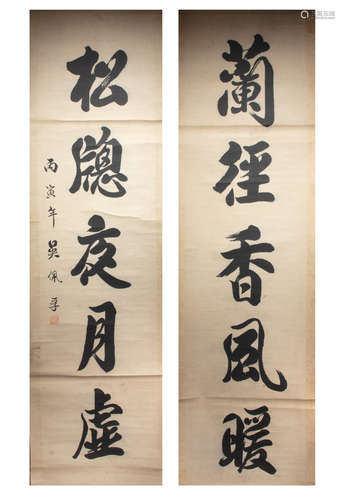 蘭徑香風暖
松牕夜月虛
丙寅年吳佩孚